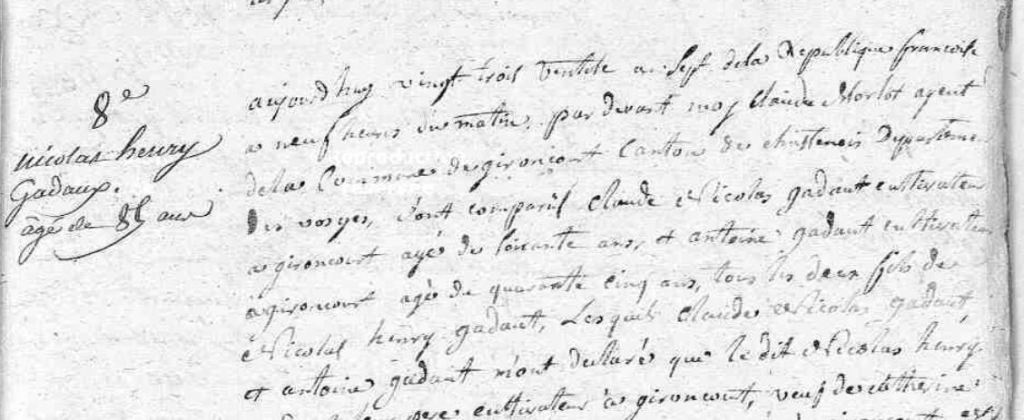 8e
nicolas henry
Gadaux.
âgé de 85 ans
aujourd huy vingt trois ventose an Sept dela Republique francoise
a neuf heures du matin, par devant moy Claude Morlot agent
dela Commune de gironcourt Canton de chattenois Departeme
des vosges, Sont comparus Claude Nicolas gadaut cultivateur
a gironcourt agé de soixante ans, et antoine gadaut cultivateur
a gironcourt agé de quarante cinq ans, tous les deux fils de
Nicolas henry gadaut, Lesquels Claude Nicolas gadaut,
et antoine gadaut m'ont declaré que le dit Nicolas henry
pere cultivateur a gironcourt, veuf de catherine